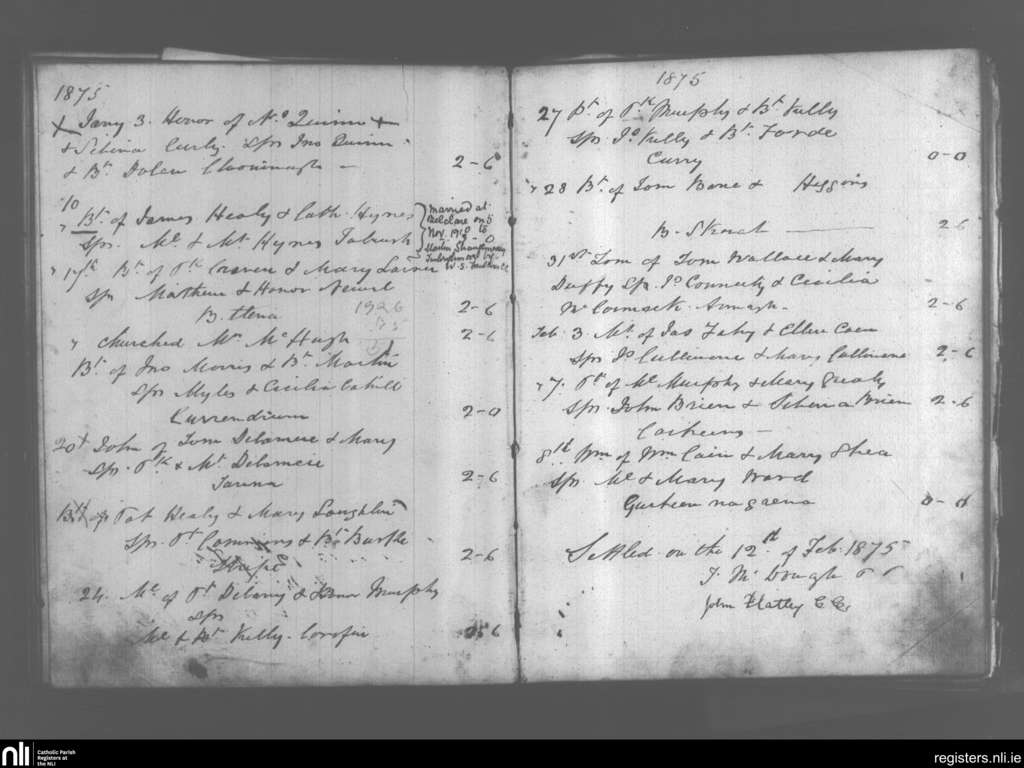 1875
Jany 3. Honor of No Quinn
& Selina Curly. Sprs Jno Quinn
& Bt. Dolen Cloonmagh — 2-6
10
" Bt. of James Healy & Cath. Hynes
Sprs. Ml. & Mt Hynes
married at
Belclare on 5
Nov 1918 to
Martin Shaughnessy
" 17th Bt. of Ptk Craven & Mary
Sp Mathew & Honor Newel
B. 2-6
1926
" churched Mrs McHugh 2-6
Bt. of Jno Morris & Bt. Martin
Sprs Myles & Cecilia Cahill
Currendrum 2-0
20th John of Tom Delamere & Mary
Sps. Ptk & Mt. Delamere
2-6
Bt of Pat Healy & Mary Loughlin
Sprs. Pt Commons & Bt Burke 2-6
24. Ml. of Pt Delany & Honor Murphy
Sprs
Ml & Bt Kelly. Corofin 6
1875
27 Pt. of Ptk Murphy & Bt. Kelly
Sps Jo Kelly & Bt. Forde
Curry 0-0
" 28 Bt. of Tom Bane & Higgins
B. — 2 6
31st Tom of Tom Wallace & Mary
Duffy Sps. Jo Connelly & Cecilia
2-6
Feb. 3. Mt. of Jas Fahy & Ellen Cain
Sprs Jo Cullinane & Mary Cullinane 2-6
" 7. Ptk of Ml. Murphy & Mary Grealy
Sps. John Brien & Selina Brien 2-6
—
8th Wm of Wm Cain & Mary Shea
Sps Ml & Mary Ward
Gurteen 0-0
Settled on the 12th of Feb. 1875
J. McDonagh P P
John Flatley C C.
nli
Catholic Parish
Registers at
the NLI
registers.nli.ie